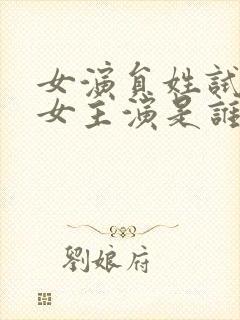 女演員姓試
女主演是誰
劉娘府